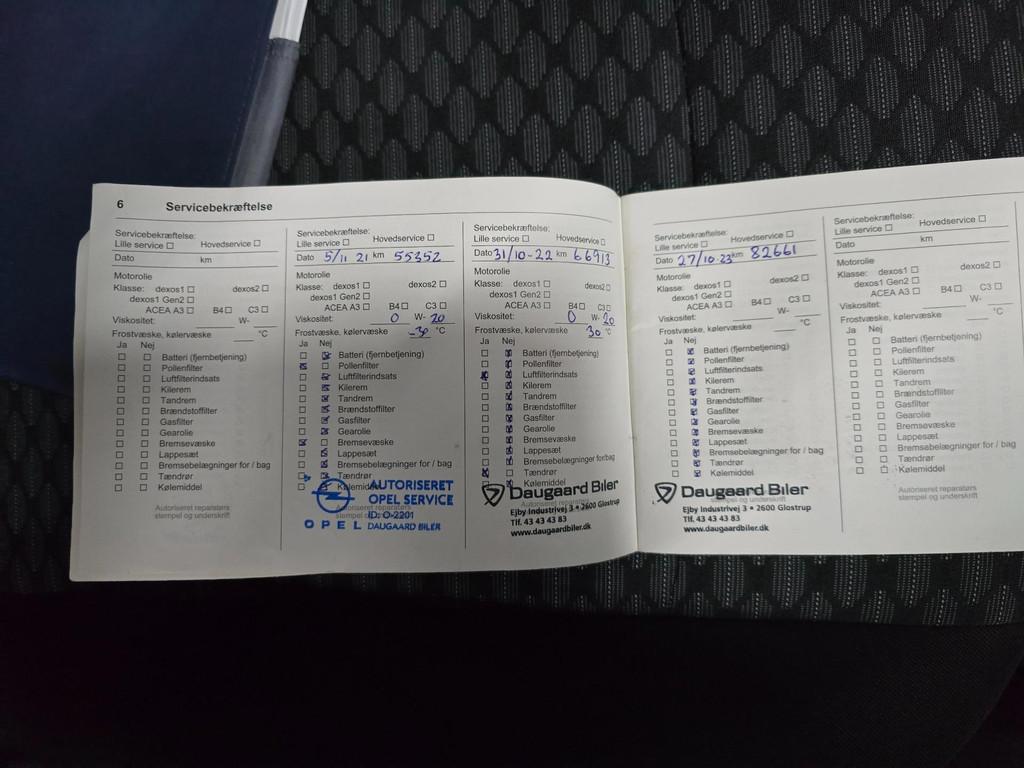 6 Servicebekræftelse
Servicebekræftelse:
Lille service ☐ Hovedservice ☐
Dato km
Motorolie
Klasse: dexos1 ☐ dexos2 ☐
dexos1 Gen2 ☐
ACEA A3 ☐ B4 ☐ C3 ☐
Viskositet: W-
Frostvæske, kølervæske °C
Ja Nej
☐ ☐ Batteri (fjernbetjening)
☐ ☐ Pollenfilter
☐ ☐ Luftfilterindsats
☐ ☐ Kilerem
☐ ☐ Tandrem
☐ ☐ Brændstoffilter
☐ ☐ Gasfilter
☐ ☐ Gearolie
☐ ☐ Bremsevæske
☐ ☐ Lappesæt
☐ ☐ Bremsebelægninger for / bag
☐ ☐ Tændrør
☐ ☐ Kølemiddel
Autoriseret reparatørs
stempel og underskrift
Servicebekræftelse:
Lille service ☐ Hovedservice ☐
Dato 5/11 21 km 55352
Motorolie
Klasse: dexos1 ☐ dexos2 ☐
dexos1 Gen2 ☐
ACEA A3 ☐ B4 ☐ C3 ☐
Viskositet: 0 W- 20
Frostvæske, kølervæske -30 °C
Ja Nej
☐ ☒ Batteri (fjernbetjening)
☒ ☐ Pollenfilter
☐ ☒ Luftfilterindsats
☐ ☒ Kilerem
☐ ☒ Tandrem
☐ ☒ Brændstoffilter
☐ ☒ Gasfilter
☐ ☒ Gearolie
☒ ☐ Bremsevæske
☐ ☒ Lappesæt
☐ ☒ Bremsebelægninger for / bag
Tændrør
Kølemiddel
AUTORISERET
OPEL SERVICE
ID: O-2201
OPEL DAUGAARD BILER
Servicebekræftelse:
Lille service ☐ Hovedservice ☐
Dato 31/10-22 km 66913
Motorolie
Klasse: dexos1 ☐ dexos2 ☐
dexos1 Gen2 ☐
ACEA A3 ☐ B4 ☐ C3 ☐
Viskositet: 0 W- 20
Frostvæske, kølervæske 30 °C
Ja Nej
☐ ☒ Batteri (fjernbetjening)
☐ ☒ Pollenfilter
☒ ☒ Luftfilterindsats
☐ ☒ Kilerem
☐ ☒ Tandrem
☐ ☒ Brændstoffilter
☐ ☒ Gasfilter
☐ ☒ Gearolie
☐ ☒ Bremsevæske
☐ ☒ Lappesæt
☐ ☒ Bremsebelægninger for/bag
☒ ☐ Tændrør
Kølemiddel
Daugaard Biler
Ejby Industrivej 3 • 2600 Glostrup
Tlf. 43 43 43 83
www.daugaardbiler.dk
Servicebekræftelse:
Lille service ☐ Hovedservice ☐
Dato 27/10-23 km 82661
Motorolie
Klasse: dexos1 ☐ dexos2 ☐
dexos1 Gen2 ☐
ACEA A3 ☐ B4 ☐ C3 ☐
Viskositet: W-
Frostvæske, kølervæske °C
Ja Nej
☐ ☒ Batteri (fjernbetjening)
☐ ☒ Pollenfilter
☐ ☒ Luftfilterindsats
☐ ☒ Kilerem
☐ ☒ Tandrem
☐ ☒ Brændstoffilter
☐ ☒ Gasfilter
☐ ☒ Gearolie
☐ ☒ Bremsevæske
☐ ☒ Lappesæt
☐ ☒ Bremsebelægninger for / bag
☐ ☒ Tændrør
☐ ☒ Kølemiddel
Daugaard Biler
Ejby Industrivej 3 • 2600 Glostrup
Tlf. 43 43 43 83
www.daugaardbiler.dk
Servicebekræftelse:
Lille service ☐ Hovedservice ☐
Dato km
Motorolie
Klasse: dexos1 ☐ dexos2 ☐
dexos1 Gen2 ☐
ACEA A3 ☐ B4 ☐ C3 ☐
Viskositet: W-
Frostvæske, kølervæske °C
Ja Nej
☐ ☐ Batteri (fjernbetjening)
☐ ☐ Pollenfilter
☐ ☐ Luftfilterindsats
☐ ☐ Kilerem
☐ ☐ Tandrem
☐ ☐ Brændstoffilter
☐ ☐ Gasfilter
☐ ☐ Gearolie
☐ ☐ Bremsevæske
☐ ☐ Lappesæt
☐ ☐ Bremsebelægninger for / bag
☐ ☐ Tændrør
☐ ☐ Kølemiddel
Autoriseret reparatørs
stempel og underskrift